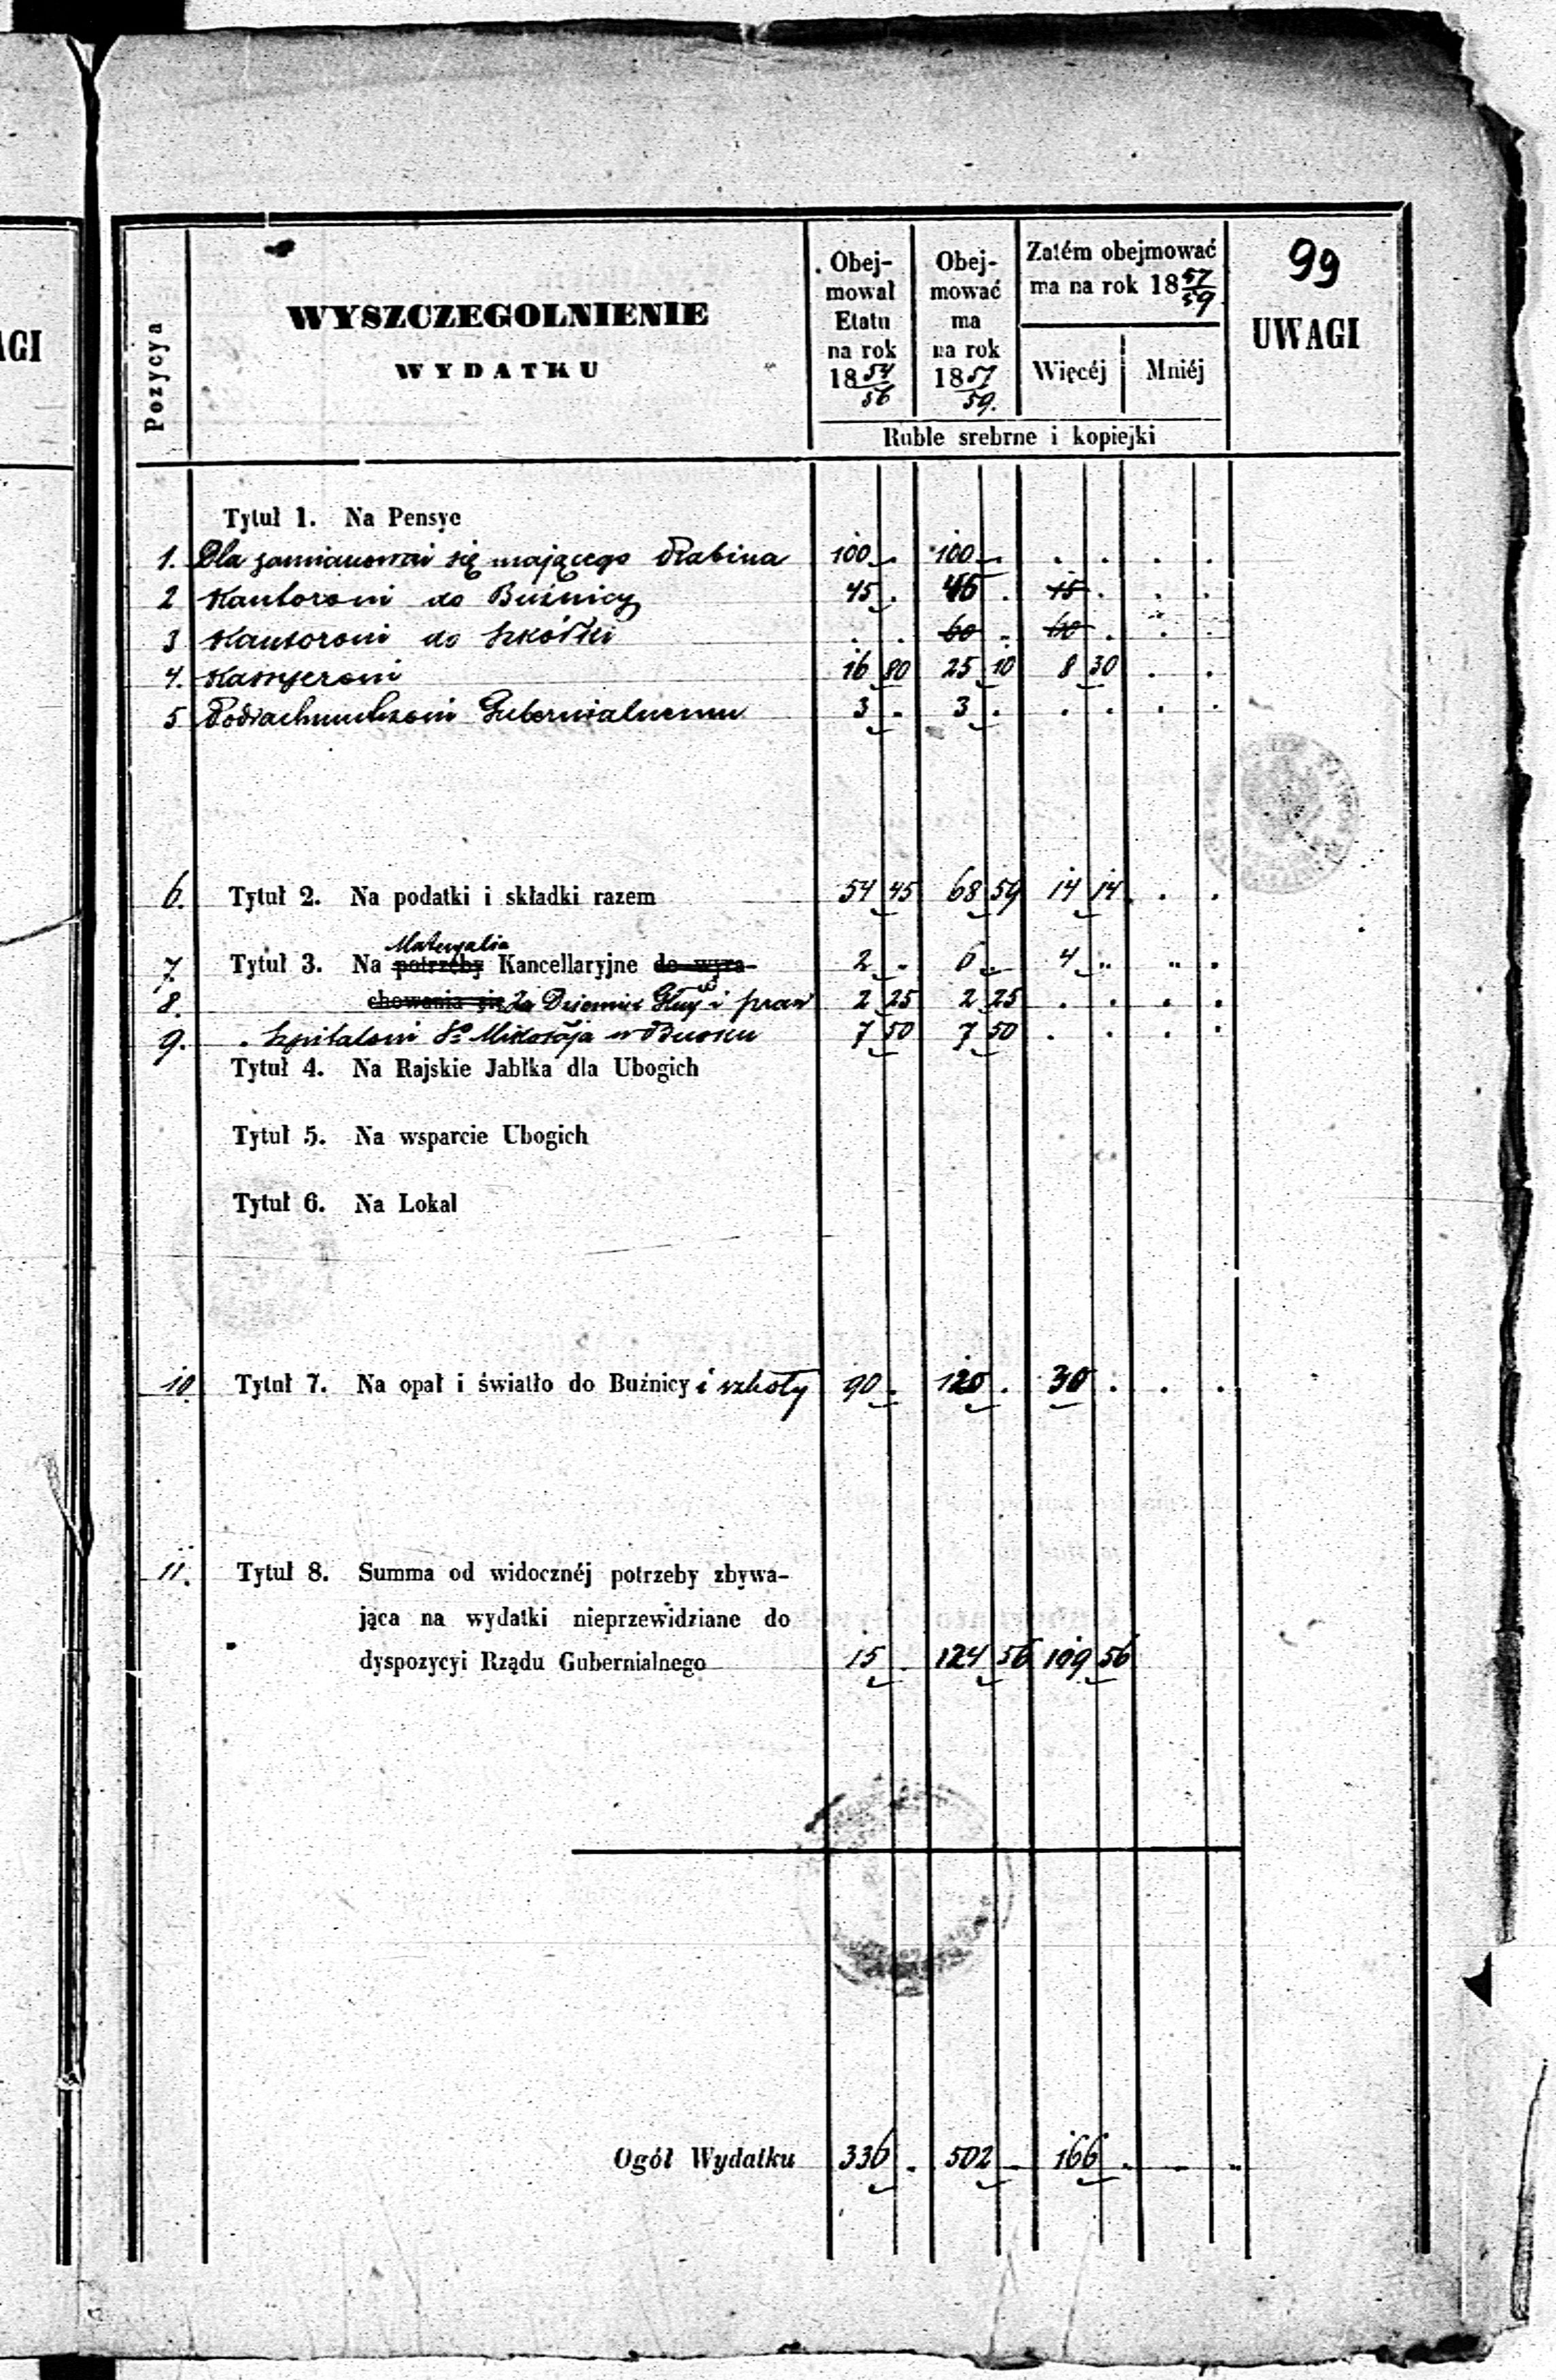 AGI
99
Pozycya
WYSZCZEGOLNIENIE
WYDATKU
Obej-
mował
Etatu
na rok
18 54/56
Obej-
mować
ma
na rok
18 57/59.
Zatém obejmować
ma na rok 18 57/59
Więcéj Mniéj
Ruble srebrne i kopiejki
UWAGI
Tytuł 1. Na Pensye
1. Dla zamianować się mającego Rabina 100 . 100 . . . . .
2 Kantorowi do Buźnicy 45 . 45 . 15 . . .
3 Kantorowi do Szkółki . . 60 . 60 . . .
4. Kassyerowi 16 80 25 10 8 30 . .
5 Podrachmistrzowi Gubernialnemu 3 . 3 . . . . .
6. Tytuł 2. Na podatki i składki razem 54 45 68 59 14 14 . .
Materyalia
7. Tytuł 3. Na potrzeby Kancellaryjne do wyra- 2 . 6 . 4 . . .
8. chowania się Za Dziennik Głuy i praw 2 25 2 25 . . . .
9. Szpitalowi Sgo Mikołaja w Busku 7 50 7 50 . . . .
Tytuł 4. Na Rajskie Jabłka dla Ubogich
Tytuł 5. Na wsparcie Ubogich
Tytuł 6. Na Lokal
10 Tytuł 7. Na opał i światło do Buźnicy i szkoły 90 . 120 . 30 . . .
11. Tytuł 8. Summa od widocznéj potrzeby zbywa-
jąca na wydatki nieprzewidziane do
dyspozycyi Rządu Gubernialnego 15 . 124 56 109 56
Ogół Wydatku 336 . 502 . 166 . . .